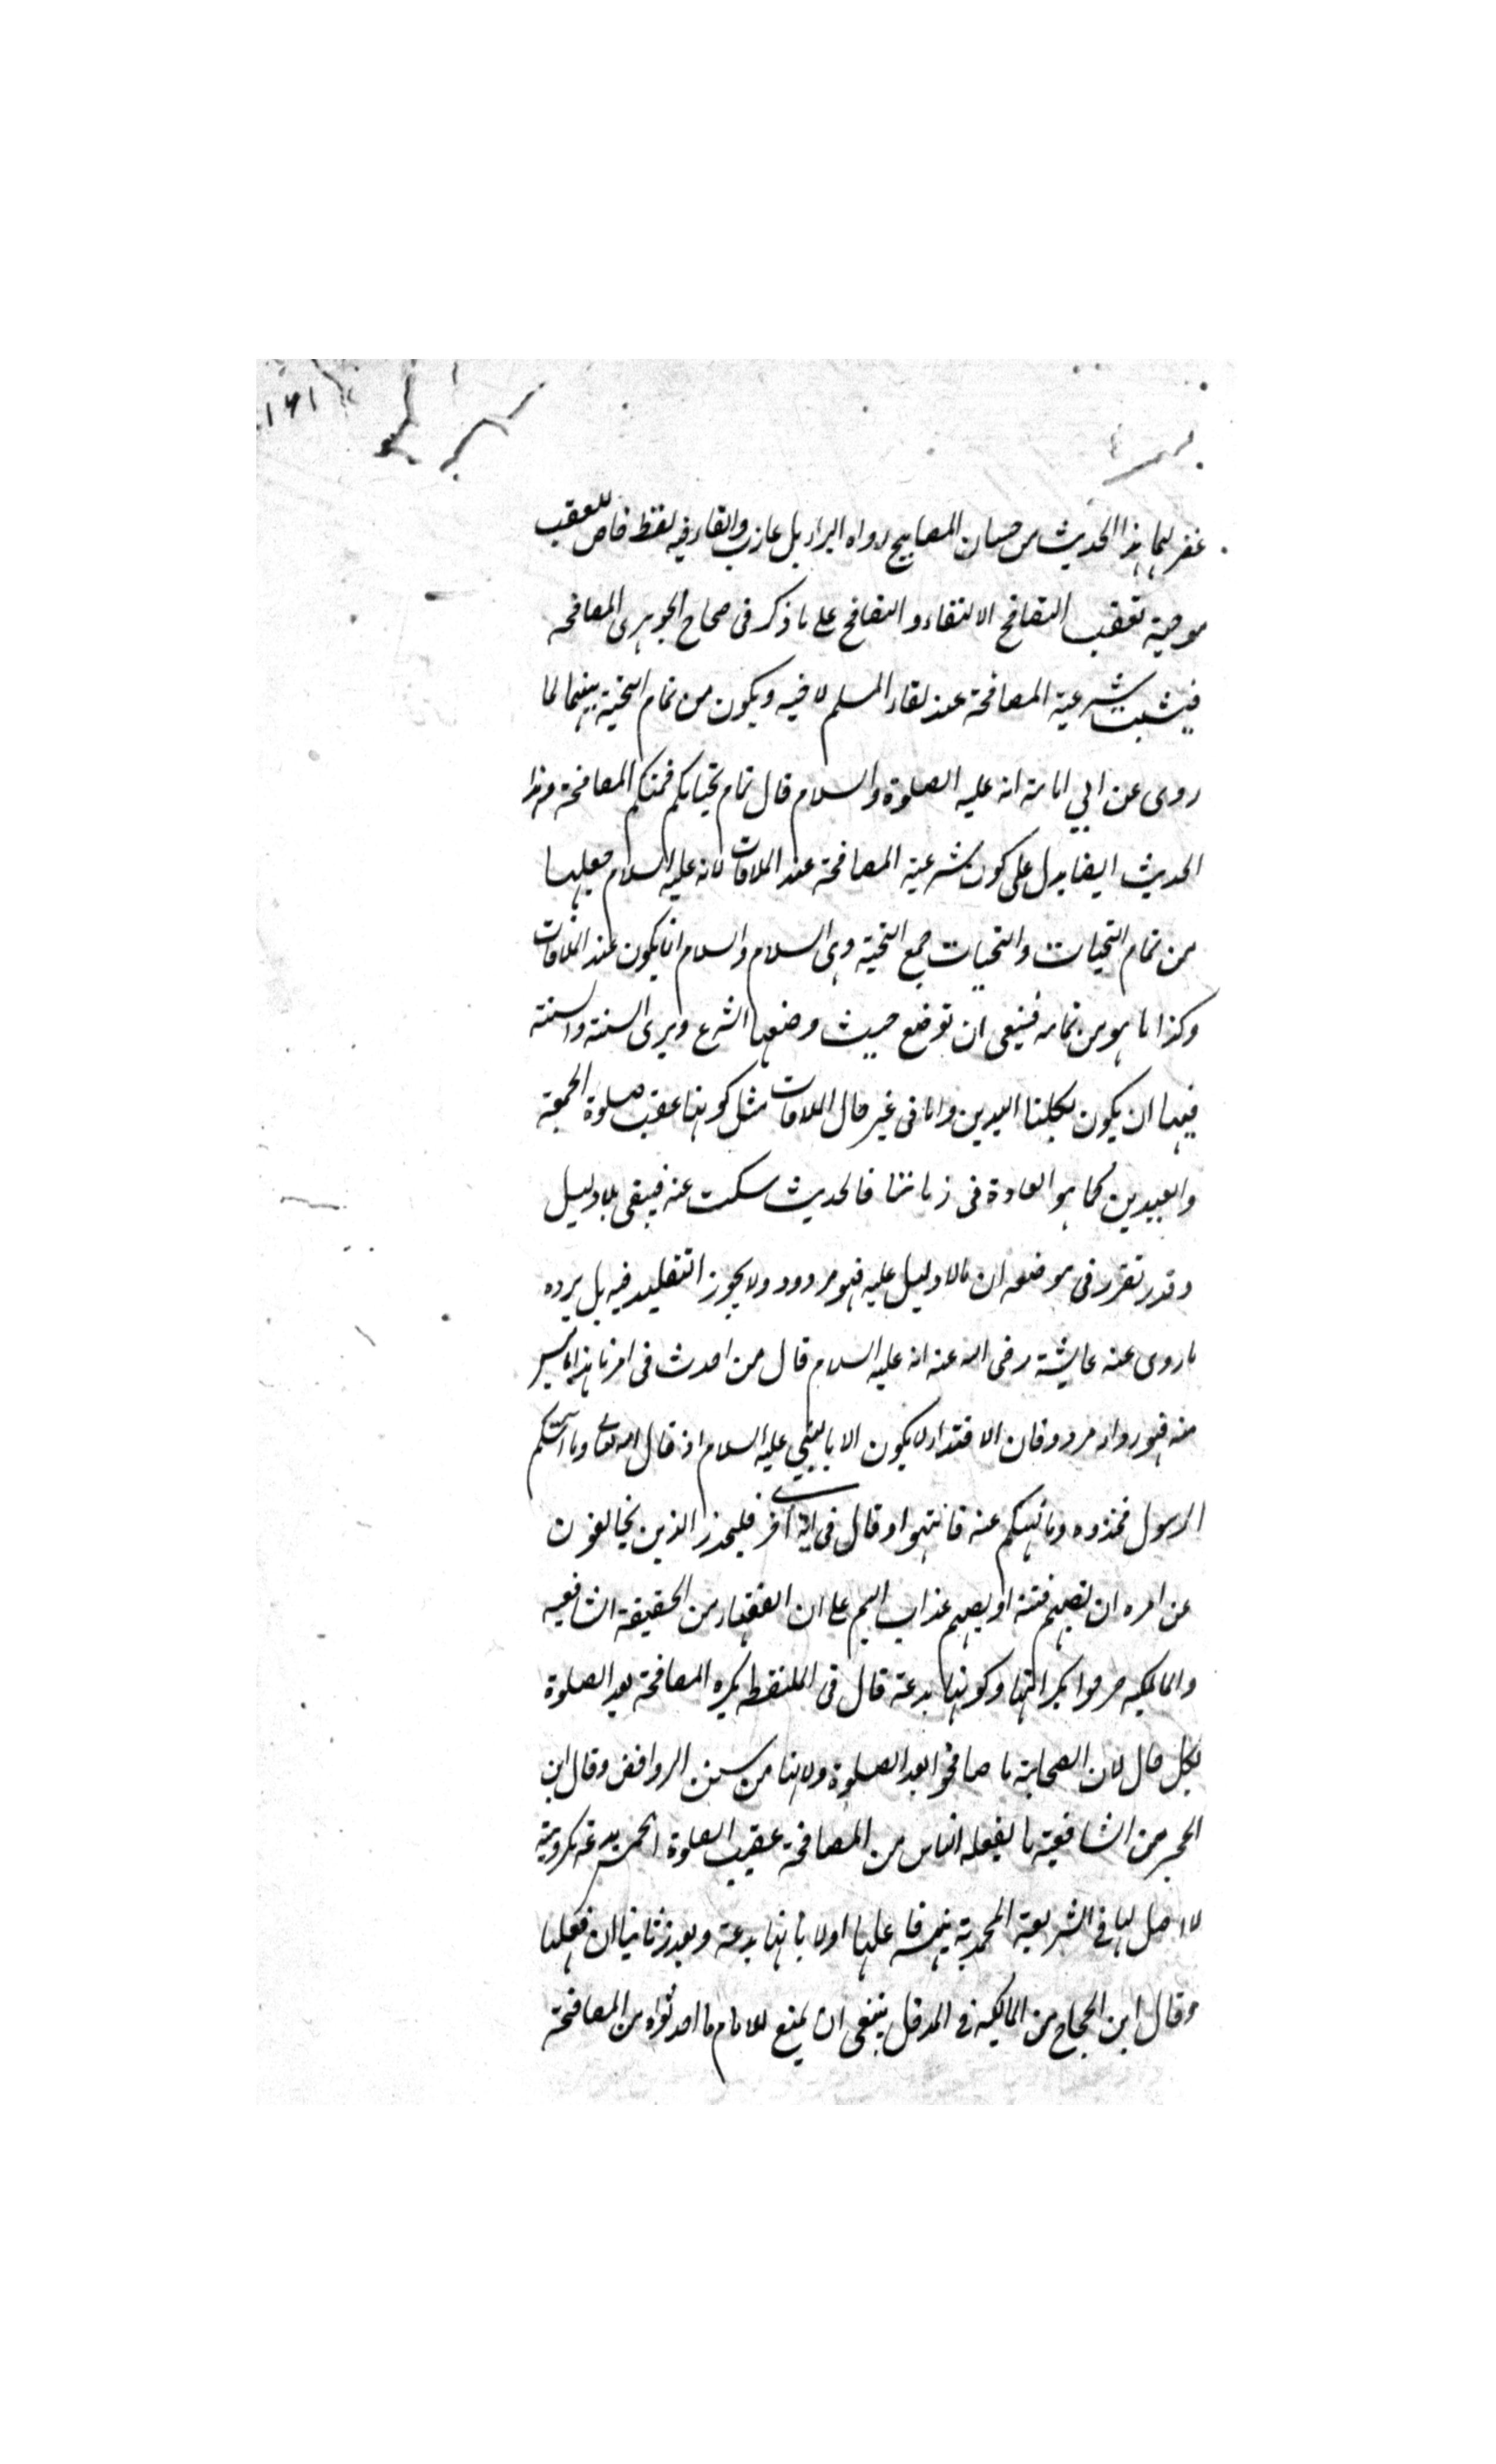 ١٦١
غفر لهما هذا الحديث من حسان المصابيح رواه البراء بل عازب والقاء فيه لفظ خاص للعقب
موجبة تعقيب التصافح الالتقاء والتصافح على ما ذكر فى صحاح الجوهرى المصافحه
فيثبت شرعية المصافحة عند لقاء المسلم لاخيه ويكون من تمام التحية بينهما لما
روى عن ابي امامة انه عليه الصلوة والسلام قال تمام تحياتكم فمنكم المصافحة وهذا
الحديث ايضا يدل على كون شرعية المصافحة عند الملاقات لانه عليه السلام جعلها
من تمام التحيات والتحيات جمع التحية وهى السلام والسلام انما يكون عند الملاقات
وكذا ما هو من تمامه فينبغى ان توضع حيث وضعها الشرع ويرى السنة والسنة
فيها ان يكون بكلتا اليدين واما فى غير حال الملاقات مثل كونها عقب صلوة الجمعة
والعيدين كما هو العادة فى زماننا فالحديث سكت عنه فيبقى بلا دليل
وقد تقرر فى موضعه ان ما لا دليل عليه فهو مردود ولا يجوز التقليد فيه بل يرده
ما روى عنه عايشة رضى الله عنه انه عليه السلام قال من احدث فى امرنا هذا ما ليس
منه فهو رد اى مردود فان الاقتداء لا يكون الا بالنبي عليه السلام اذ قال الله تعالى وما آتيكم
الرسول فخذوه وما نهيكم عنه فانتهوا وقال فى آية آخر فليحذر الذين يخالفون
عن امره ان تصيبهم فتنة او يصيبهم عذاب اليم على ان الفقهاء من الحقيقة الشافعيه
والمالكيه صرحوا بكراهتها وكونها بدعة قال فى الملتقط يكره المصافحة بعد الصلوة
بكل حال لان الصحابة ما صافحوا بعد الصلوة ولانها من سنن الروافض وقال ابن
الحجر من الشافعية ما يفعله الناس من المصافحة عقيب الصلوة الخمس بدعة مكروهة
لا اصل لها فى الشريعة المحمدية ينبه فاعلها اولا بانها بدعة ويعزر ثانيا ان فعلها
وقال ابن الحجاج من المالكية فى المدخل ينبغى ان يمنع للامام ما احدثوه من المصافحة